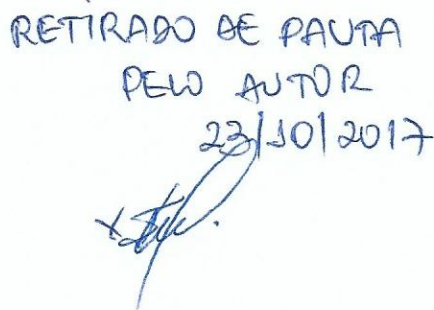 RETIRADO DE PAUTA
PELO AUTOR
23/10/2017